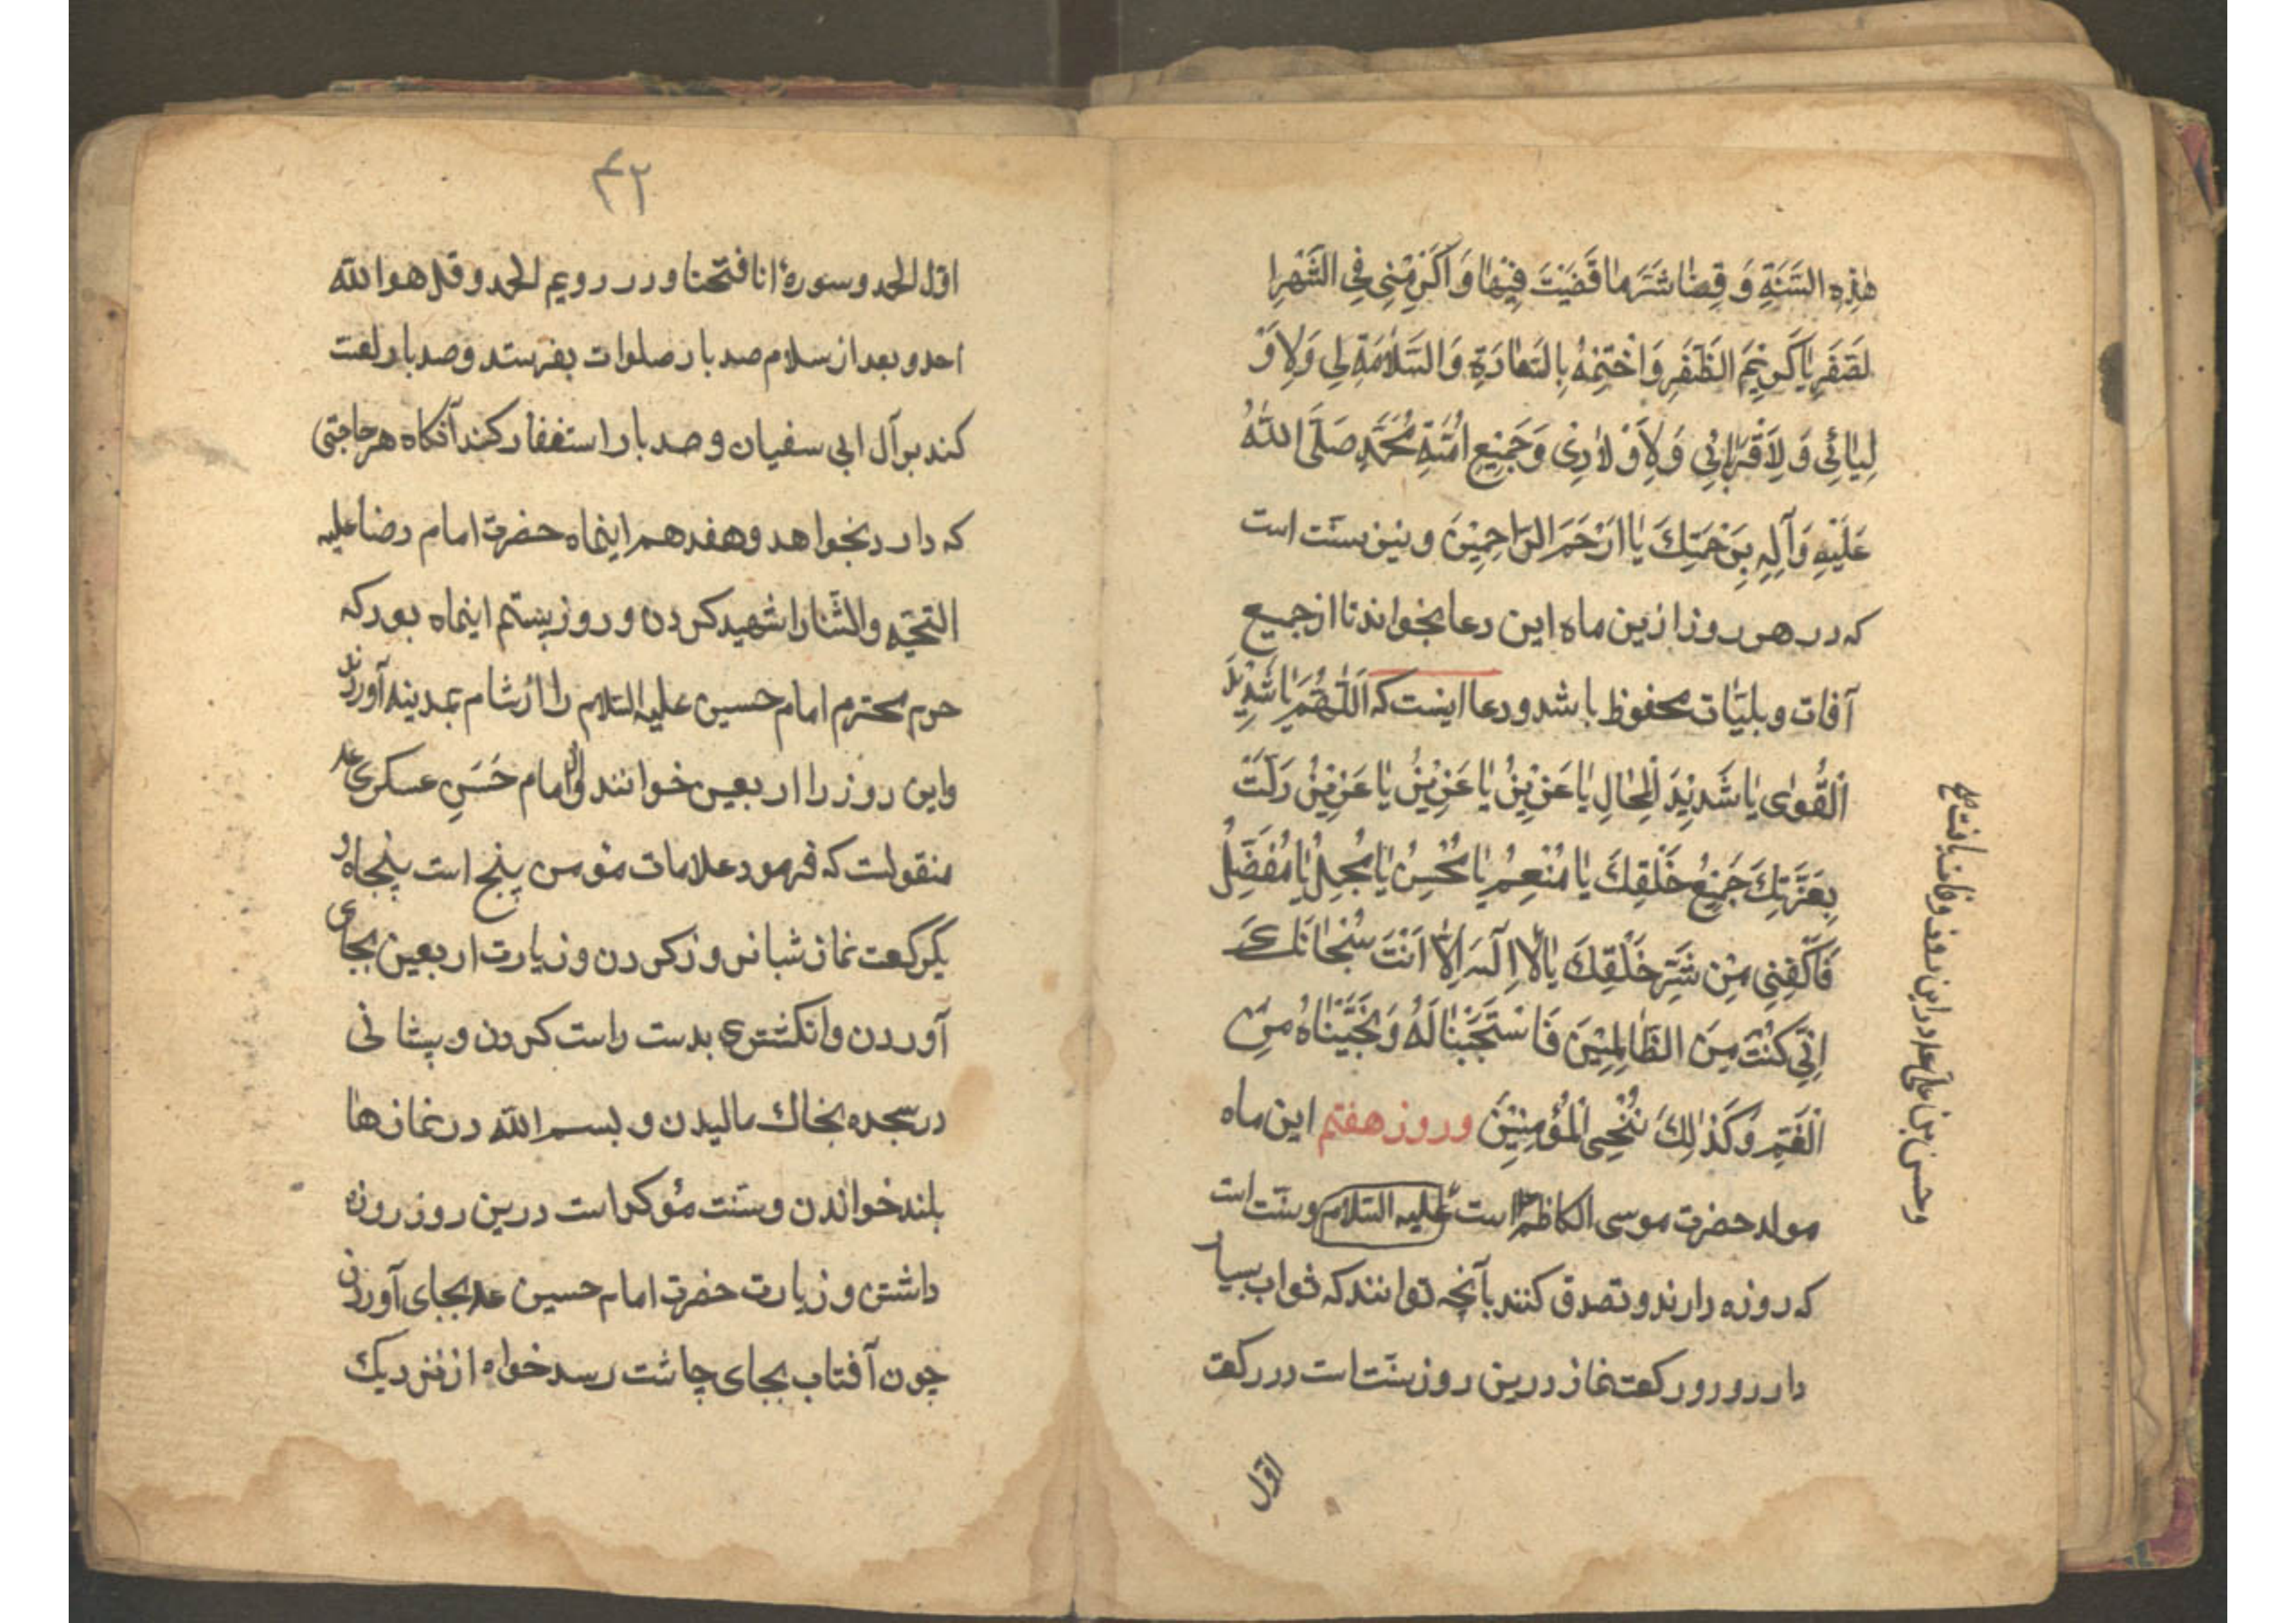 هٰذِهِ السَّنَةِ وَ قِضٰا شَرَّ مٰا قَضَيْتَ فِيْهٰا وَ اَكْرِمْنِي فِي الشَّهْرِ ا
لصَّفَرِ يٰا كَرِيْمَ الظَّفَرِ وَ اخْتِمْهُ بِالسَّعٰادَةِ وَ السَّلٰامَةِ لِي وَ لِاَوْ
لِيٰائِي وَ لِاَقْرِبٰائِي وَ لِاَوْلٰادِي وَ جَمِيْعِ اُمَّةِ مُحَمَّدٍ صَلَّى اللّٰهُ
عَلَيْهِ وَ آلِهِ بِرَحْمَتِكَ يٰا اَرْحَمَ الرّٰاحِمِيْنَ و نيز سنّت است
كه در هر روز ازين ماه اين دعا بخواند تا از جميع
آفات و بليّات محفوظ باشد و دعا اينست كه اَللّٰهُمَّ يٰا شَدِيْدَ
الْقُوٰى يٰا شَدِيْدَ الْمِحٰالِ يٰا عَزِيْزُ يٰا عَزِيْزُ يٰا عَزِيْزُ ذَلَّتْ
بِعَزَّتِكَ جَمِيْعُ خَلْقِكَ يٰا مُنْعِمُ يٰا مُحْسِنُ يٰا مُجْمِلُ يٰا مُفَضِّلُ
فَاكْفِنِي مِنْ شَرِّ خَلْقِكَ يٰا لٰا اِلٰهَ اِلّٰا اَنْتَ سُبْحٰانَكَ
اِنِّي كُنْتُ مِنَ الظّٰالِمِيْنَ فَاسْتَجَبْنٰا لَهُ وَ نَجَّيْنٰاهُ مِنَ
الْغَمِّ وَ كَذٰلِكَ نُنْجِي الْمُؤْمِنِيْنَ و روز هفتم اين ماه
مولد حضرت موسى الكاظم است عليه السلام و سنّت است
كه روزه دارند و تصدق كنند بآنچه توانند كه ثواب بسيار
دارد و دو ركعت نماز درين روز سنّت است در ركعت
اوّل
و حسن بن على ع در اين روز وفات يافت
۴۲
اوّل الحمد و سورهٔ انا فتحنا و در دويم الحمد و قل هو الله
احد و بعد از سلام صد بار صلوات بفرستد و صد بار لعنت
كند بر آل ابى سفيان و صد بار استغفار كند آنكاه هر حاجتى
كه دارد بخواهد و هفدهم اينماه حضرت امام رضا عليه
التحيّه و الثّنا را شهيد كردن و روز بيستم اينماه بود كه
حرم محترم امام حسين عليه السلام را از شام بمدينه آوردند
و اين روز را اربعين خوانند و از امام حَسَنِ عسكرى ع
منقولست كه فرمود علامات مؤمن پنج است پنجاه و
يكركعت نماز شبانروز كردن و زيارت اربعين بجاى
آوردن و انكشترى بدست راست كردن و پيشانى
در سجده بخاك ماليدن و بسم الله در نمازها
بلند خواندن و سنّت مؤكد است درين روز روزه
داشتن و زيارت حضرت امام حسين ع بجاى آوردن
چون آفتاب بجاى چاشت رسد خواه از نزديك